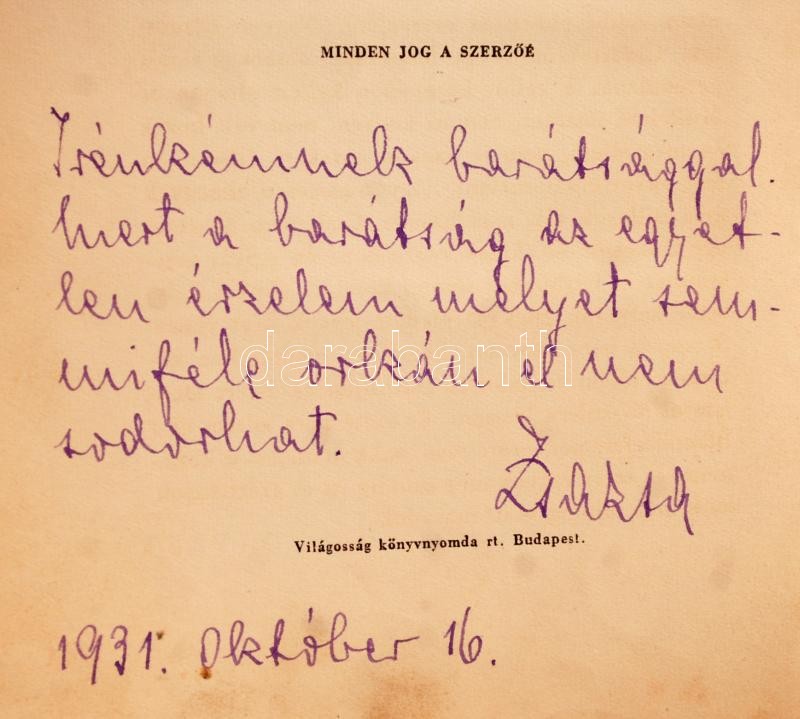 MINDEN JOG A SZERZŐÉ
Irénkémnek barátsággal.
Mert a barátság az egyet-
len érzelem melyet sem-
miféle orkán el nem
darabanth
sodorhat.
Zsazsa
Világosság könyvnyomda rt. Budapest.
1931. Október 16.